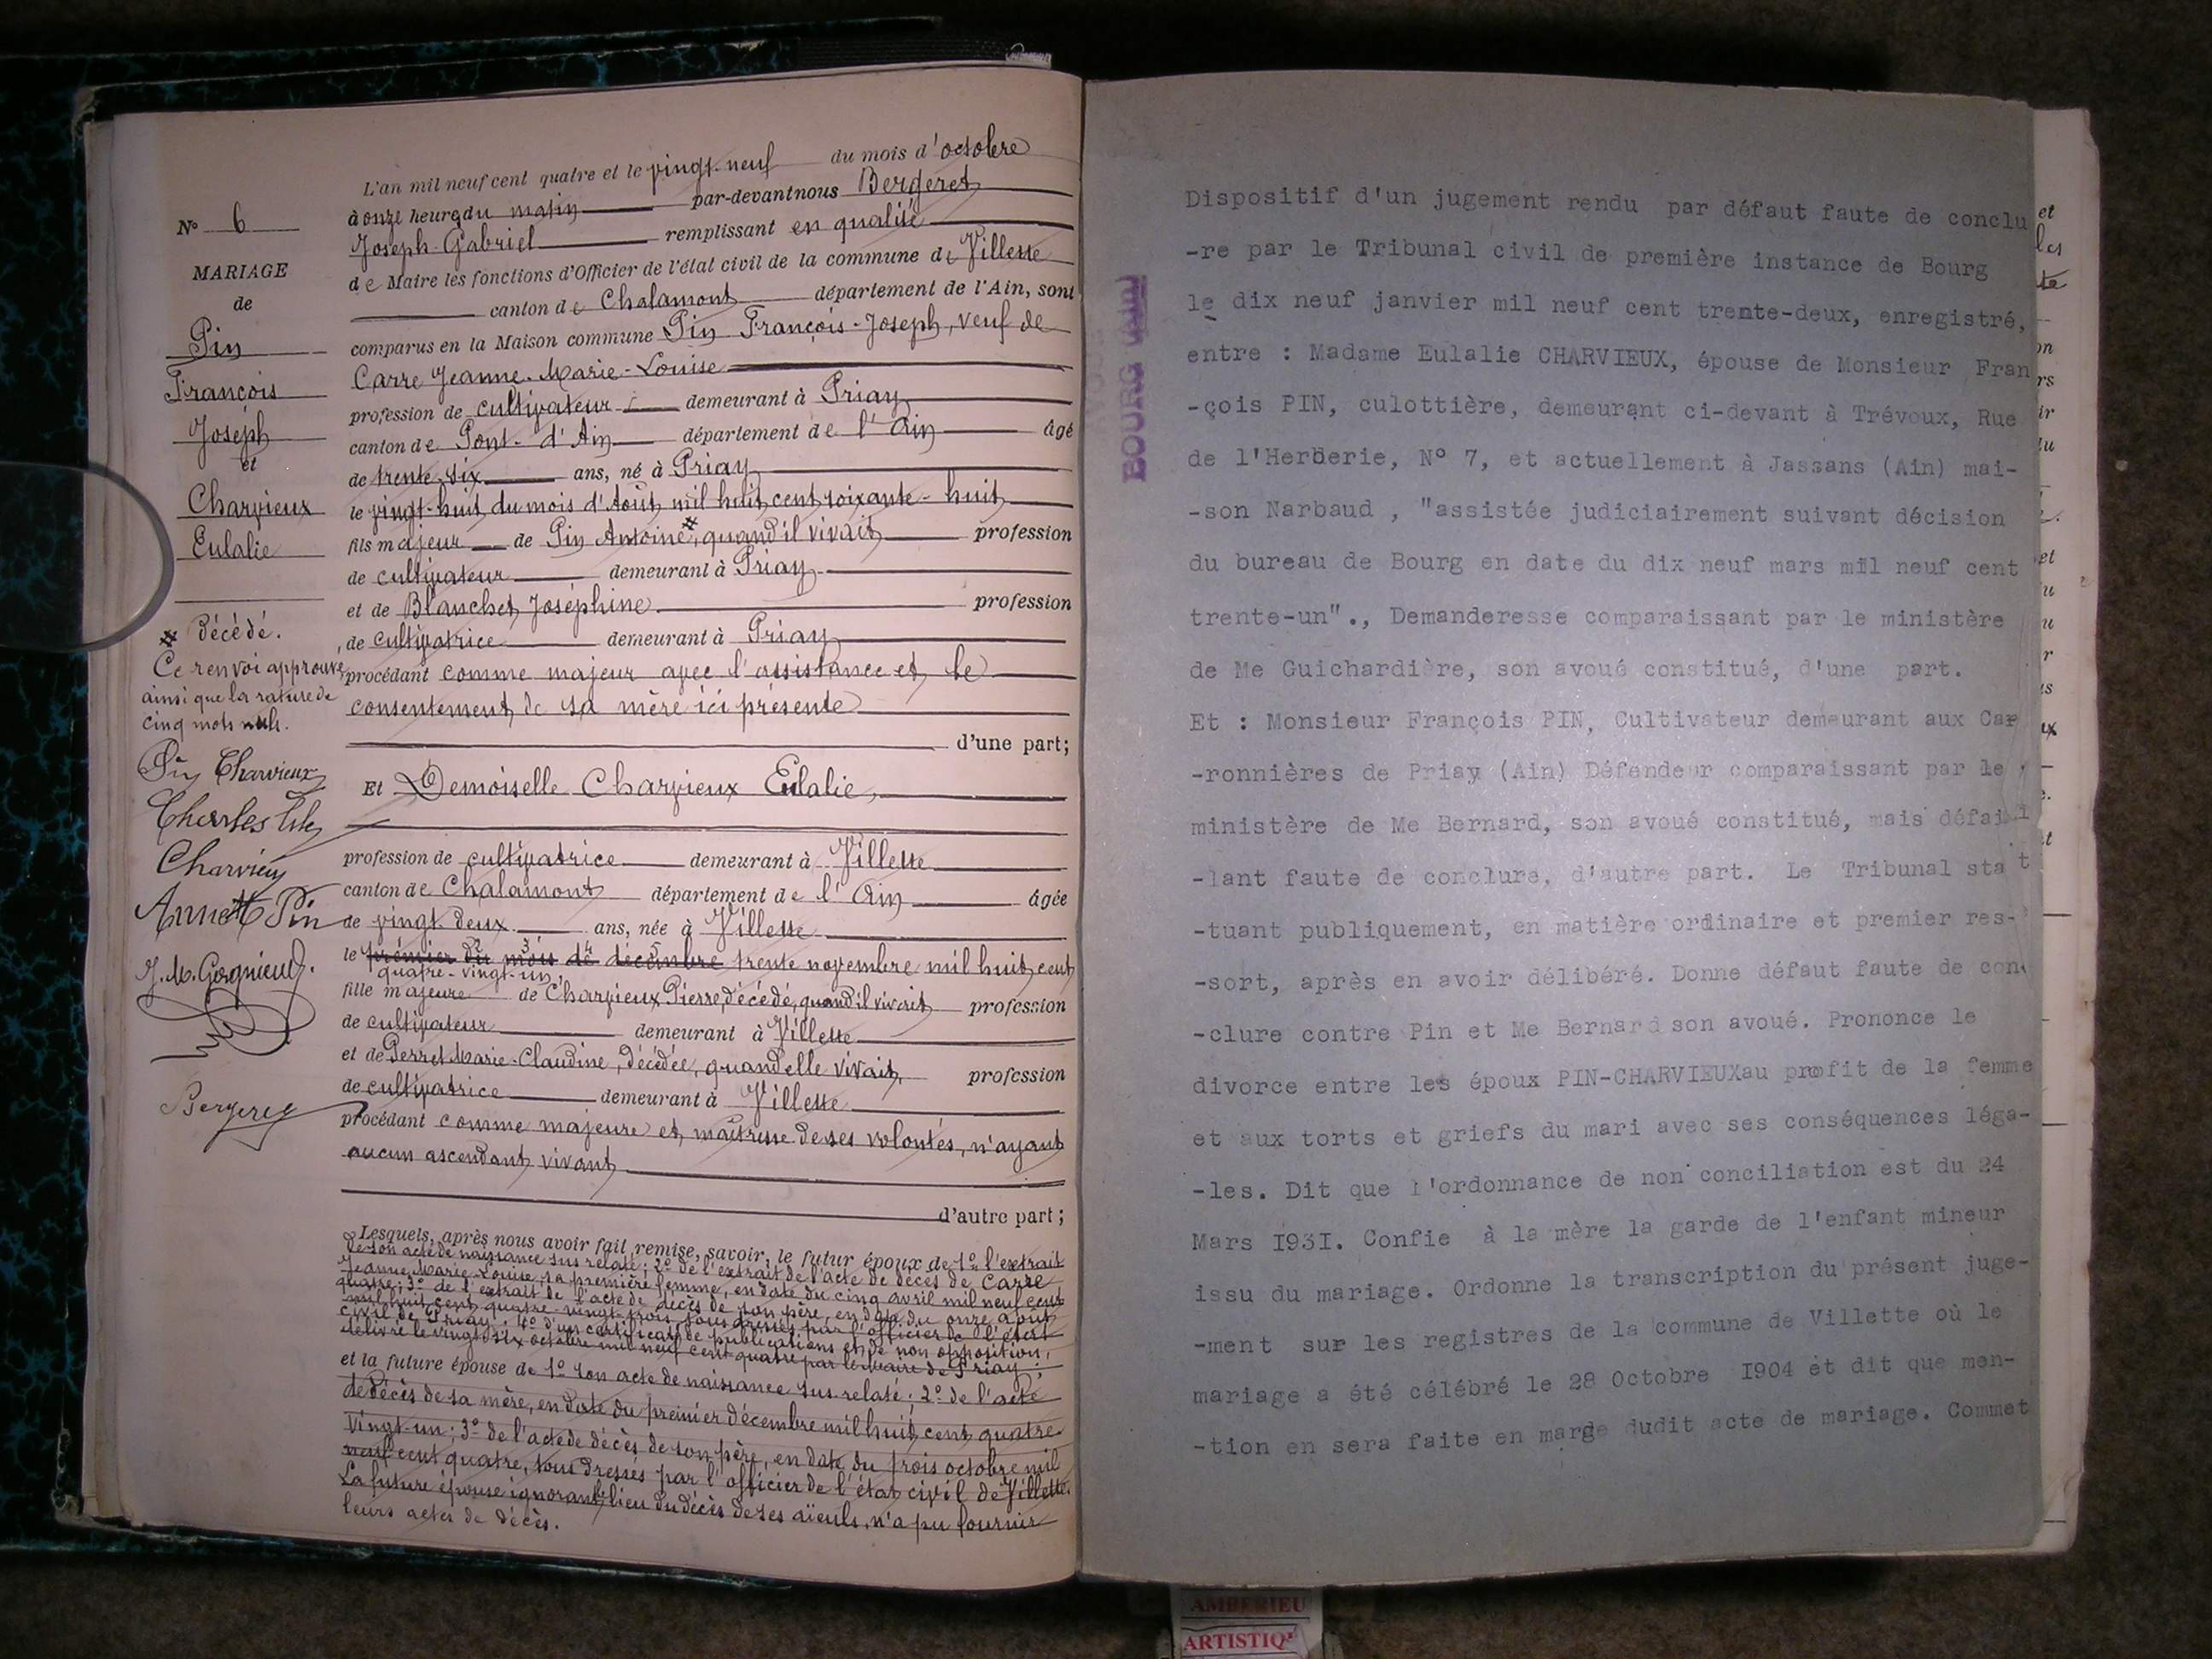 L'an mil neuf cent quatre et le vingt-neuf du mois d'octobre
à onze heures du matin par-devant nous Bergeret
Joseph-Gabriel remplissant en qualité
de Maire les fonctions d'Officier de l'état civil de la commune de Villette
canton de Chalamont département de l'Ain, sont
comparus en la Maison commune Pin François-Joseph, veuf de
Carre Jeanne-Marie-Louise
profession de cultivateur demeurant à Priay
canton de Pont-d'Ain département de l'Ain âgé
de trente six ans, né à Priay
le vingt-huit du mois d'Août mil huit cent soixante-huit
fils majeur de Pin Antoine #, quand il vivait profession
de cultivateur demeurant à Priay
et de Blanchet Joséphine profession
de cultivatrice demeurant à Priay
procédant comme majeur avec l'assistance et le
consentement de sa mère ici présente
d'une part;
Et Demoiselle Charvieux Eulalie,
profession de cultivatrice demeurant à Villette
canton de Chalamont département de l'Ain âgée
de vingt-deux ans, née à Villette
le premier du mois de décembre trente novembre mil huit cent
quatre-vingt-un,
fille majeure de Charvieux Pierre, décédé, quand il vivait profession
de cultivateur demeurant à Villette
et de Perret Marie-Claudine, décédée, quand elle vivait, profession
de cultivatrice demeurant à Villette
procédant comme majeure et maîtresse de ses volontés, n'ayant
aucun ascendant vivant
d'autre part;
Lesquels, après nous avoir fait remise, savoir, le futur époux de 1º l'extrait
de son acte de naissance sus relaté; 2º de l'extrait de l'acte de décès de Carre
Jeanne Marie-Louise, sa première femme, en date du cinq avril mil neuf cent
quatre; 3º de l'extrait de l'acte de décès de son père, en date du onze août
mil huit cent quatre-vingt-trois, tous dressés par l'officier de l'état
civil de Priay; 4º d'un certificat de publications et de non opposition,
délivré le vingt-six octobre mil neuf cent quatre par le Maire de Priay;
et la future épouse de 1º son acte de naissance sus relaté; 2º de l'acte
de décès de sa mère, en date du premier décembre mil huit cent quatre-
vingt-un; 3º de l'acte de décès de son père, en date du trois octobre mil
neuf cent quatre, tous dressés par l'officier de l'état civil de Villette.
La future épouse ignorant le lieu du décès de ses aïeuls, n'a pu fournir
leurs actes de décès.
Nº 6
MARIAGE
de
Pin
François
Joseph
et
Charvieux
Eulalie
# décédé.
Ce renvoi approuvé
ainsi que la rature de
cinq mots nuls.
Pin Charvieux
Charvieux
Annette Pin
Bergeret
BOURG (Ain)
Dispositif d'un jugement rendu par défaut faute de conclu
-re par le Tribunal civil de première instance de Bourg
le dix neuf janvier mil neuf cent trente-deux, enregistré,
entre : Madame Eulalie CHARVIEUX, épouse de Monsieur Fran
-çois PIN, culottière, demeurant ci-devant à Trévoux, Rue
de l'Herberie, N° 7, et actuellement à Jassans (Ain) mai-
-son Narbaud , "assistée judiciairement suivant décision
du bureau de Bourg en date du dix neuf mars mil neuf cent
trente-un"., Demanderesse comparaissant par le ministère
de Me Guichardière, son avoué constitué, d'une part.
Et : Monsieur François PIN, Cultivateur demeurant aux Car
-ronnières de Priay (Ain) Défendeur comparaissant par le
ministère de Me Bernard, son avoué constitué, mais défail
-lant faute de conclure, d'autre part. Le Tribunal sta t
-tuant publiquement, en matière ordinaire et premier res-
-sort, après en avoir délibéré. Donne défaut faute de con
-clure contre Pin et Me Bernard son avoué. Prononce le
divorce entre les époux PIN-CHARVIEUXau profit de la femme
et aux torts et griefs du mari avec ses conséquences léga-
-les. Dit que l'ordonnance de non conciliation est du 24
Mars I93I. Confie à la mère la garde de l'enfant mineur
issu du mariage. Ordonne la transcription du présent juge-
-ment sur les registres de la commune de Villette où le
mariage a été célébré le 28 Octobre I904 et dit que men-
-tion en sera faite en marge dudit acte de mariage. Commet
AMBERIEU
ARTISTIQ